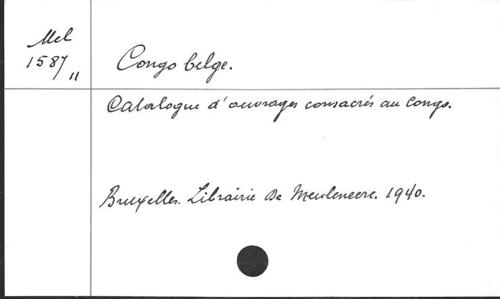 Mel
1587
11
Congo belge.
Catalogue d'ouvrages consacrés au Congo.
Bruxelles. Librairie De Meuleneere. 1940.